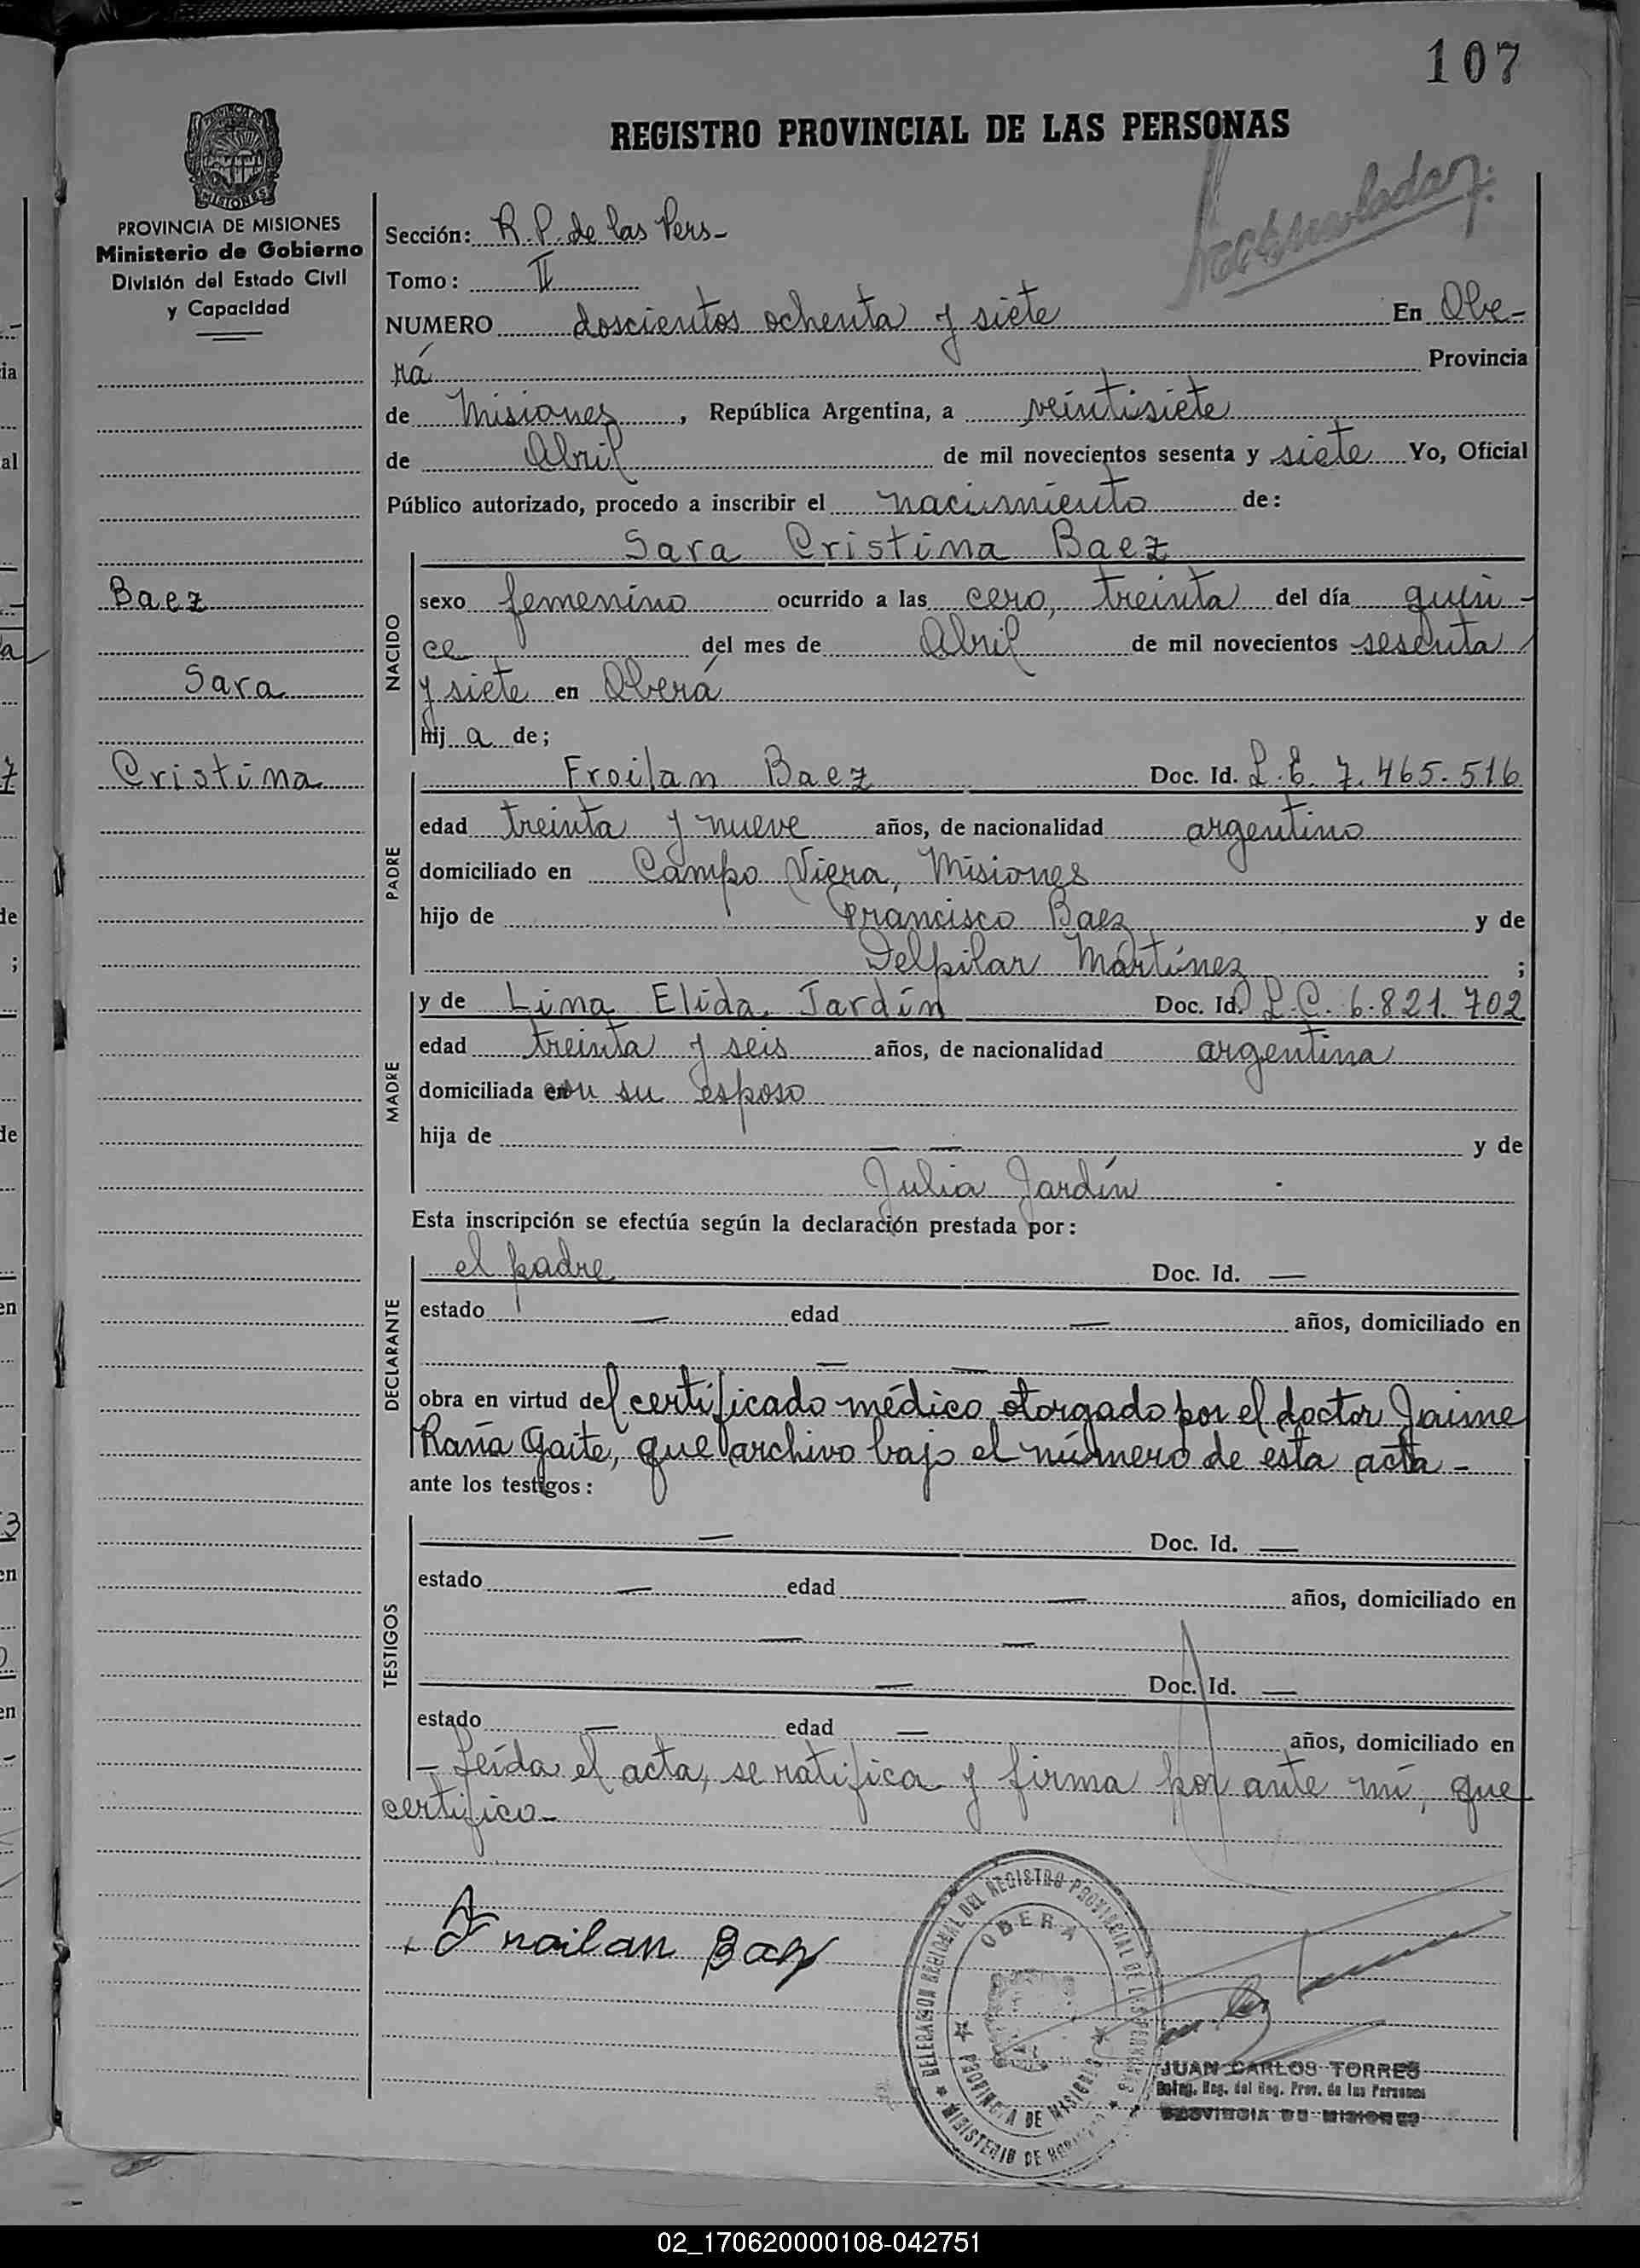 107
REGISTRO PROVINCIAL DE LAS PERSONAS
PROVINCIA DE MISIONES
Ministerio de Gobierno
División del Estado Civil
y Capacidad
Baez
Sara
Cristina
Sección: R. P. de las Pers-
Tomo: II
NUMERO doscientos ochenta y siete En Obe-
rá Provincia
de Misiones, República Argentina, a veintisiete
de Abril de mil novecientos sesenta y siete Yo, Oficial
Público autorizado, procedo a inscribir el nacimiento de:
Sara Cristina Baez
NACIDO
sexo femenino ocurrido a las cero, treinta del día quin-
ce del mes de Abril de mil novecientos sesenta
y siete en Oberá
hij a de;
PADRE
Froilan Baez Doc. Id. L. E. 7.465.516
edad treinta y nueve años, de nacionalidad argentino
domiciliado en Campo Viera, Misiones
hijo de Francisco Baez y de
Delpilar Martínez ;
MADRE
y de Lina Elida Jardín Doc. Id. L.C. 6.821.702
edad treinta y seis años, de nacionalidad argentina
domiciliada con su esposo
hija de — — y de
Julia Jardín
Esta inscripción se efectúa según la declaración prestada por:
DECLARANTE
el padre Doc. Id. —
estado — edad — años, domiciliado en
— —
obra en virtud del certificado médico otorgado por el doctor Jaime
Raña Gaite, que archivo bajo el número de esta acta-
ante los testigos:
TESTIGOS
— Doc. Id. —
estado — edad — años, domiciliado en
— —
— Doc. Id. —
estado — edad — años, domiciliado en
- Leída el acta, se ratifica y firma por ante mí, que
certifico-
Froilan Baez
DELEGACION REGIONAL DEL REGISTRO PROVINCIAL DE LAS PERSONAS
OBERA
PROVINCIA DE MISIONES
MINISTERIO DE
JUAN CARLOS TORRES
Deleg. Reg. del Reg. Prov. de las Personas
PROVINCIA DE MISIONES
02_170620000108-042751